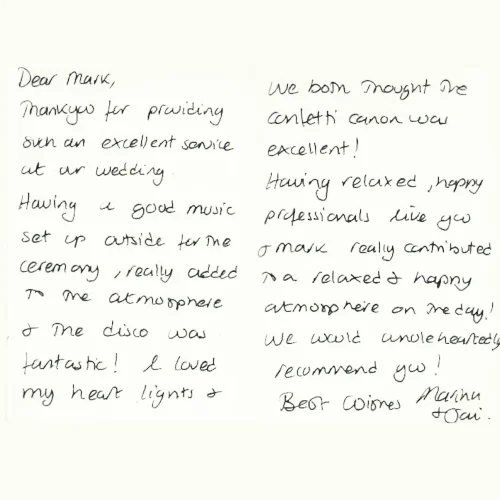 Dear Mark,
Thankyou for providing
such an excellent service
at our wedding.
Having a good music
set up outside for the
ceremony, really added
to the atmosphere
& the disco was
fantastic! I loved
my heart lights &
We both thought the
confetti canon was
excellent!
Having relaxed, happy
professionals like you
& mark really contributed
to a relaxed & happy
atmosphere on the day!
We would wholeheartedly
recommend you!
Best Wishes